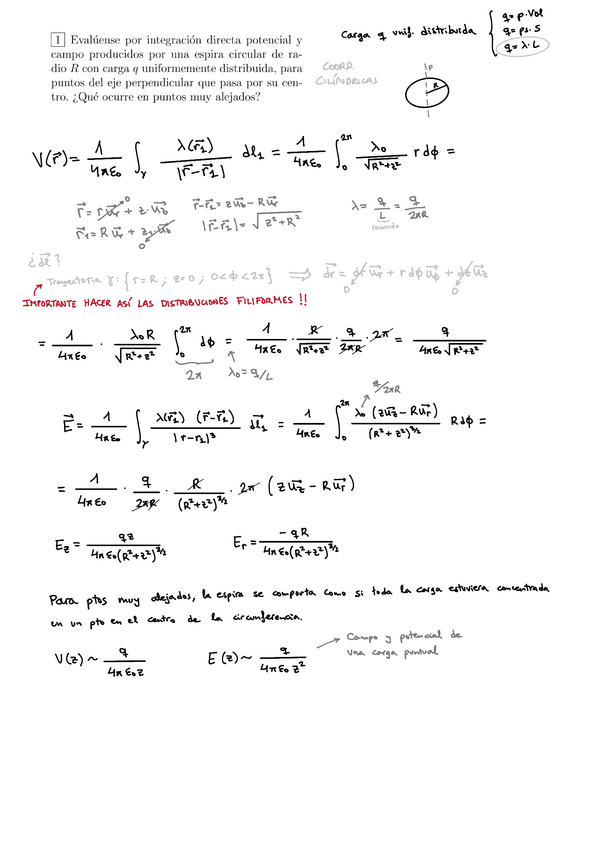 1 Evalúense por integración directa potencial y
campo producidos por una espira circular de ra-
dio R con carga q uniformemente distribuida, para
puntos del eje perpendicular que pasa por su cen-
tro. ¿Qué ocurre en puntos muy alejados?
Carga q unif. distribuida { q = ρ·Vol
q = ρs·S
q = λ·L
COORD.
CILÍNDRICAS
P
R
V(r⃗) = 1/4πε₀ ∫γ λ(r⃗₁)/|r⃗-r⃗₁| dl₁ = 1/4πε₀ ∫₀^2π λ₀/√(R²+z²) r dϕ =
r⃗ = r u⃗r + z·u⃗z r⃗-r⃗₁ = z u⃗z - R u⃗r λ = q/L = q/2πR
0
r⃗₁ = R u⃗r + z₁ u⃗z |r⃗-r⃗₁| = √(z²+R²) recorrido
0
¿dl⃗?
Trayectoria γ: {r=R ; z=0 ; 0<ϕ<2π} ⟹ dr⃗ = dr u⃗r + r dϕ u⃗ϕ + dz u⃗z
0 0
IMPORTANTE HACER ASÍ LAS DISTRIBUCIONES FILIFORMES !!
= 1/4πε₀ · λ₀R/√(R²+z²) ∫₀^2π dϕ = 1/4πε₀ · R/√(R²+z²) · q/2πR · 2π = q/4πε₀√(R²+z²)
2π λ₀ = q/L
q/2πR
E⃗ = 1/4πε₀ ∫γ λ(r⃗₁) (r⃗-r⃗₁)/|r-r₁|³ dl⃗₁ = 1/4πε₀ ∫₀^2π λ₀ (z u⃗z - R u⃗r)/(R²+z²)^3/2 R dϕ =
= 1/4πε₀ · q/2πR · R/(R²+z²)^3/2 · 2π (z u⃗z - R u⃗r)
Ez = qz/4πε₀(R²+z²)^3/2 Er = -qR/4πε₀(R²+z²)^3/2
Para ptos muy alejados, la espira se comporta como si toda la carga estuviera concentrada
en un pto en el centro de la circunferencia.
V(z) ~ q/4πε₀z E(z) ~ q/4πε₀z² → Campo y potencial de
una carga puntual